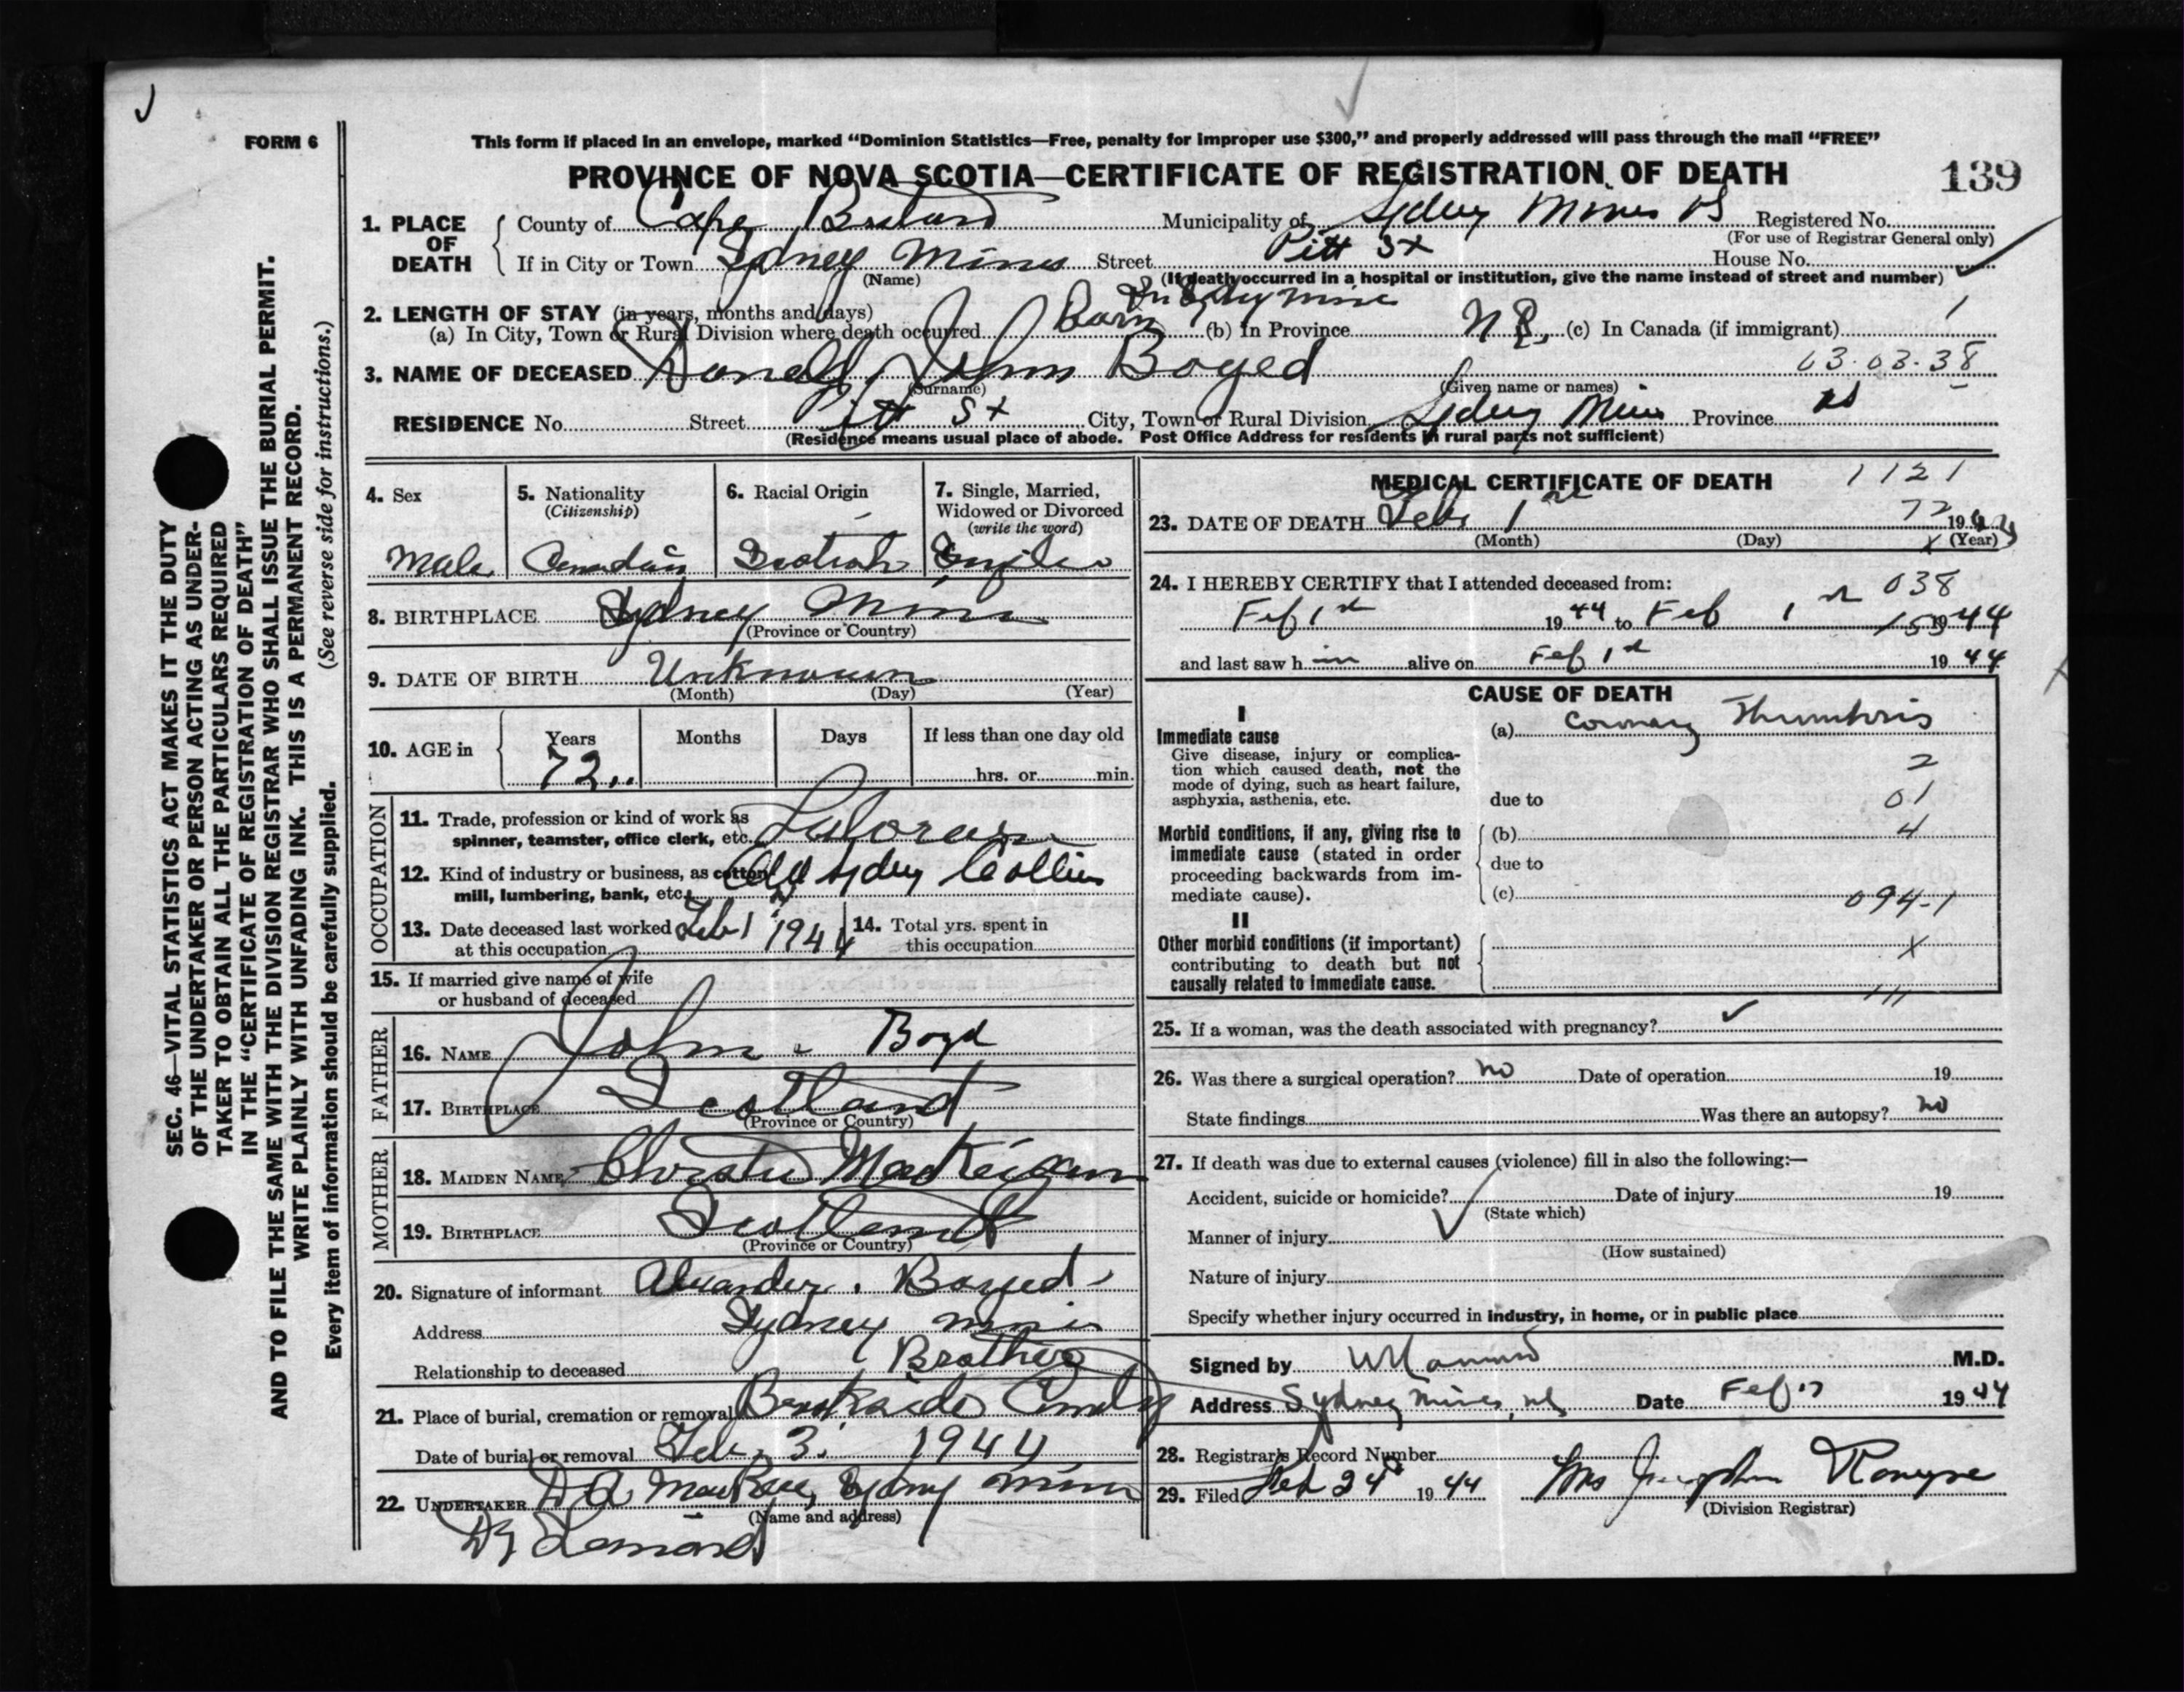 FORM 6
This form if placed in an envelope, marked “Dominion Statistics—Free, penalty for improper use $300,” and properly addressed will pass through the mail “FREE”
PROVINCE OF NOVA SCOTIA—CERTIFICATE OF REGISTRATION OF DEATH
139
1. PLACE OF DEATH County of Cape Breton Municipality of Sydney Mines NS Registered No.
(For use of Registrar General only)
If in City or Town Sydney Mines Street Pitt St House No.
(Name) (If death occurred in a hospital or institution, give the name instead of street and number)
2. LENGTH OF STAY (in years, months and days)
(a) In City, Town or Rural Division where death occurred Born in Sydney Mines (b) In Province NS, (c) In Canada (if immigrant) 1
3. NAME OF DECEASED Donald John Boyed 03.03.38
(Surname) (Given name or names)
RESIDENCE No. Street Pitt St City, Town or Rural Division Sydney Mines Province NS
(Residence means usual place of abode. Post Office Address for residents in rural parts not sufficient)
4. Sex
Male
5. Nationality
(Citizenship)
Canadian
6. Racial Origin
Scotish
7. Single, Married,
Widowed or Divorced
(write the word)
Single
8. BIRTHPLACE Sydney Mines
(Province or Country)
9. DATE OF BIRTH Unknown
(Month) (Day) (Year)
10. AGE in Years Months Days If less than one day old
72 hrs. or min.
OCCUPATION
11. Trade, profession or kind of work as
spinner, teamster, office clerk, etc.
12. Kind of industry or business, as cotton
mill, lumbering, bank, etc. Old Sydney Collies
13. Date deceased last worked
at this occupation Feb 1 1944
14. Total yrs. spent in
this occupation
15. If married give name of wife
or husband of deceased
FATHER
16. NAME John Boyd
17. BIRTHPLACE Scotland
(Province or Country)
MOTHER
18. MAIDEN NAME Christie MacKeigan
19. BIRTHPLACE Scotland
(Province or Country)
20. Signature of informant Alexander Boyed
Address Sydney Mines
Relationship to deceased Brother
21. Place of burial, cremation or removal Brookside Cemty
Date of burial or removal Feb. 3. 1944
22. UNDERTAKER D A MacRae, Sydney Mines
(Name and address)
MEDICAL CERTIFICATE OF DEATH 1121
72
23. DATE OF DEATH Feb 1st 1944
(Month) (Day) (Year)
24. I HEREBY CERTIFY that I attended deceased from: 038
Feb 1st 1944 to Feb 1st 1944
and last saw him alive on Feb 1st 1944
CAUSE OF DEATH
I
Immediate cause
Give disease, injury or complica-
tion which caused death, not the
mode of dying, such as heart failure,
asphyxia, asthenia, etc.
(a) Coronary Thrombosis
2
due to 01
Morbid conditions, if any, giving rise to
immediate cause (stated in order
proceeding backwards from im-
mediate cause).
(b) 4
due to
(c) 094-1
II
Other morbid conditions (if important)
contributing to death but not
causally related to immediate cause.
X
111
25. If a woman, was the death associated with pregnancy?
26. Was there a surgical operation? no Date of operation 19
State findings Was there an autopsy? no
27. If death was due to external causes (violence) fill in also the following:—
Accident, suicide or homicide? Date of injury 19
(State which)
Manner of injury
(How sustained)
Nature of injury
Specify whether injury occurred in industry, in home, or in public place
Signed by M.D.
Address Sydney Mines, NS Date Feb 1944
28. Registrar's Record Number
29. Filed Feb 24 1944 Mrs Joseph
(Division Registrar)
SEC. 46—VITAL STATISTICS ACT MAKES IT THE DUTY
OF THE UNDERTAKER OR PERSON ACTING AS UNDER-
TAKER TO OBTAIN ALL THE PARTICULARS REQUIRED
IN THE “CERTIFICATE OF REGISTRATION OF DEATH”
AND TO FILE THE SAME WITH THE DIVISION REGISTRAR WHO SHALL ISSUE THE BURIAL PERMIT.
WRITE PLAINLY WITH UNFADING INK. THIS IS A PERMANENT RECORD.
Every item of information should be carefully supplied. (See reverse side for instructions.)